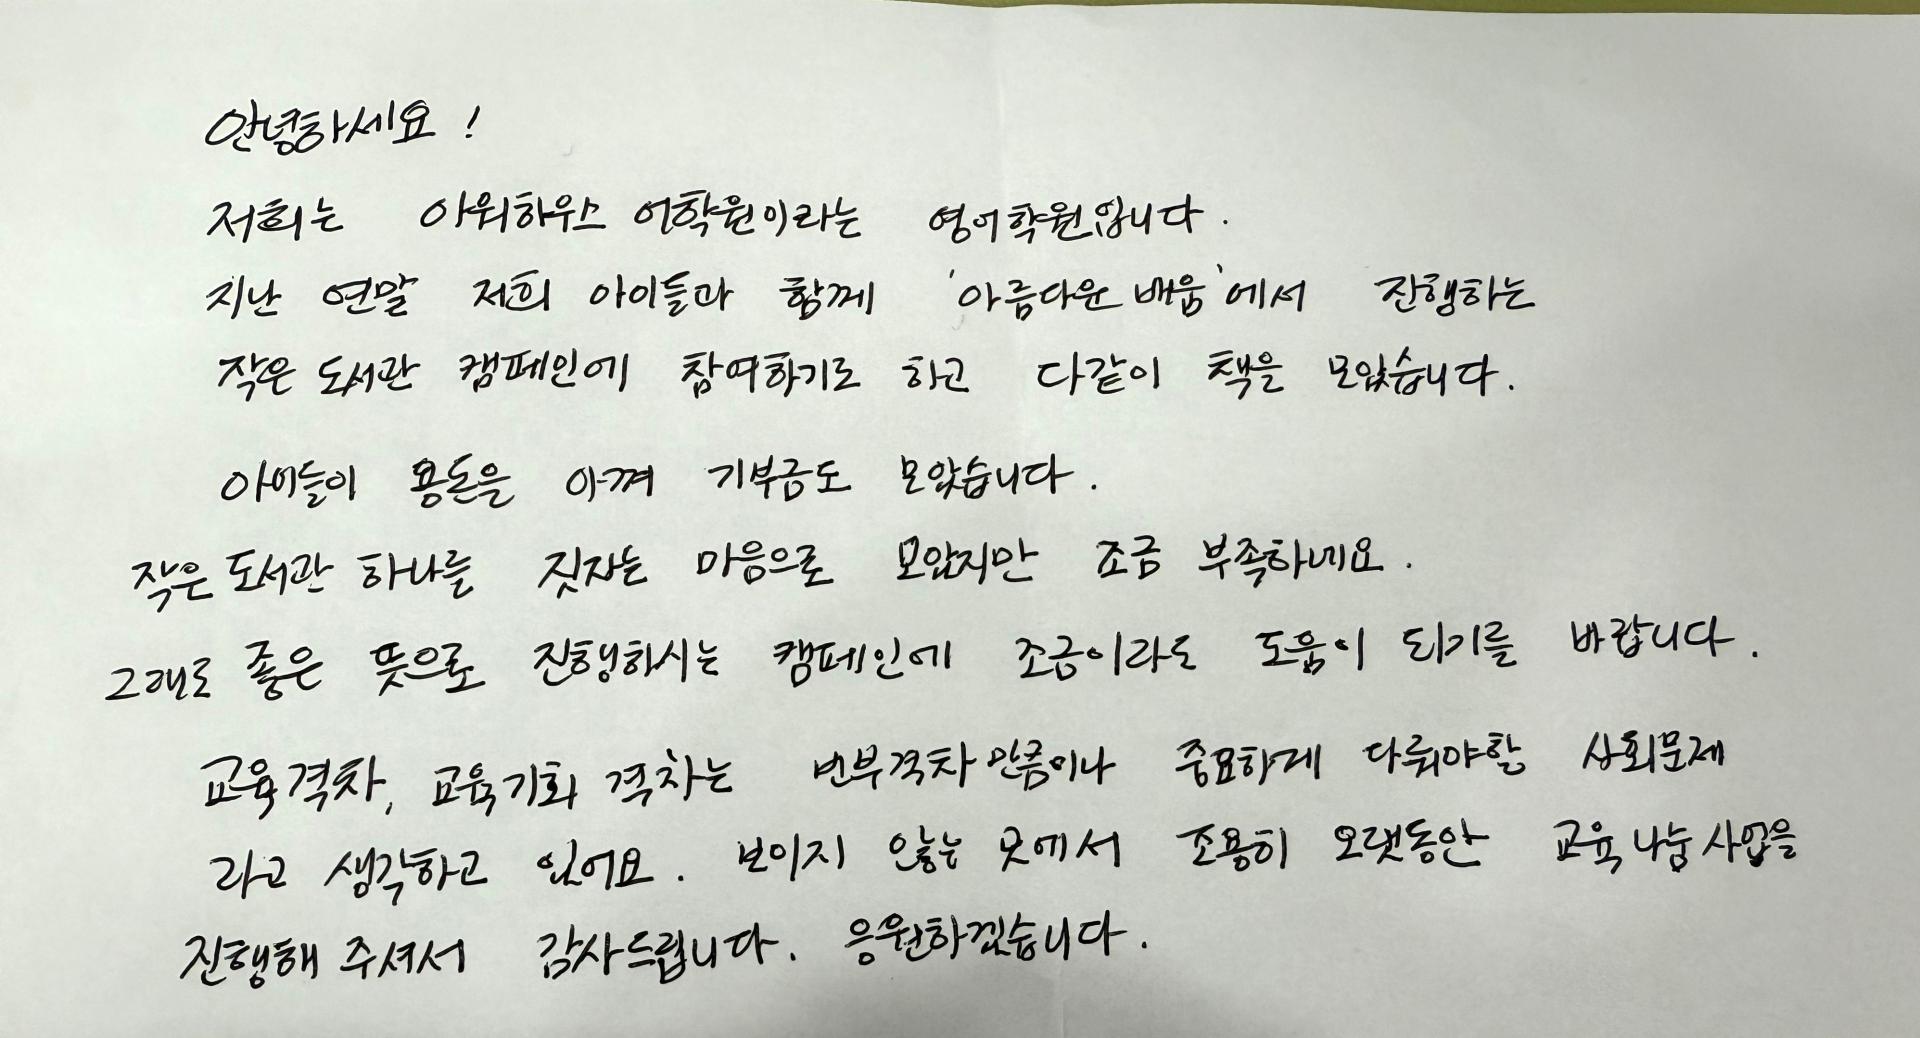 안녕하세요!
저희는 아워하우스 어학원이라는 영어학원입니다.
지난 연말 저희 아이들과 함께 '아름다운 배움'에서 진행하는
작은 도서관 캠페인에 참여하기로 하고 다같이 책을 모았습니다.
아이들이 용돈을 아껴 기부금도 모았습니다.
작은 도서관 하나를 짓자는 마음으로 모았지만 조금 부족하네요.
그래도 좋은 뜻으로 진행하시는 캠페인에 조금이라도 도움이 되기를 바랍니다.
교육격차, 교육기회 격차는 빈부격차 만큼이나 중요하게 다뤄야할 사회문제
라고 생각하고 있어요. 보이지 않는 곳에서 조용히 오랫동안 교육 나눔 사업을
진행해 주셔서 감사드립니다. 응원하겠습니다.